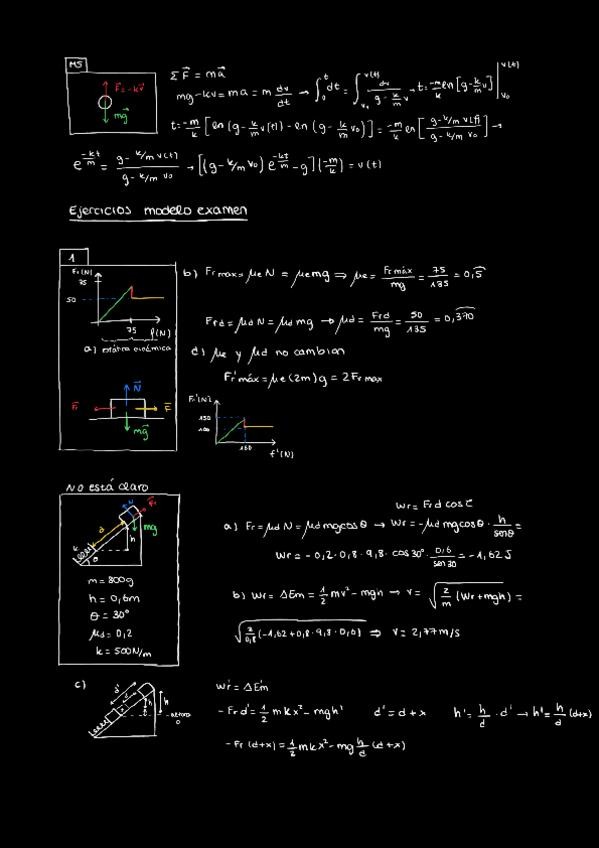 M5
F⃗=-kv⃗
mg⃗
ΣF⃗ = ma⃗
mg-kv = ma = m dv/dt → ∫₀ᵗ dt = ∫_{v₀}^{v(t)} dv/(g - k/m v) → t = -m/k ln[g - k/m v] |_{v₀}^{v(t)}
t = -m/k [ln(g - k/m v(t)) - ln(g - k/m v₀)] = -m/k ln[(g - k/m v(t))/(g - k/m v₀)] →
e^{-kt/m} = (g - k/m v(t))/(g - k/m v₀) → [(g - k/m v₀) e^{-kt/m} - g](-m/k) = v(t)
Ejercicios modelo examen
1
Fr(N)
75
50
75
f(N)
a) estática dinámica
N⃗
F⃗r
F⃗
mg⃗
b) Fr max = μe N = μe mg ⇒ μe = Fr máx/mg = 75/135 = 0,5
Frd = μd N = μd mg → μd = Frd/mg = 50/135 = 0,370
d) μe y μd no cambian
Fr' máx = μe (2m) g = 2 Fr max
Fr'(N)
150
100
150
f'(N)
No está claro
N
F⃗r
mg
d
h
k
θ
m = 800g
h = 0,6m
θ = 30°
μd = 0,2
k = 500N/m
a) Fr = μd N = μd mg cos θ → Wr = -μd mg cos θ · h/sen θ =
Wr = -0,2 · 0,8 · 9,8 · cos 30° · 0,6/sen 30 = -1,62 J
b) Wr = ΔEm = 1/2 mv² - mgh → v = √(2/m (Wr + mgh)) =
√(2/0,8 (-1,62 + 0,8 · 9,8 · 0,6)) ⇒ v = 2,77 m/s
c)
d'
h
h
0
Wr' = ΔE'm
- Fr d' = 1/2 m k x² - mgh' d' = d + x h' = h/d · d' → h' = h/d (d+x)
- Fr (d+x) = 1/2 m k x² - mg h/d (d+x)